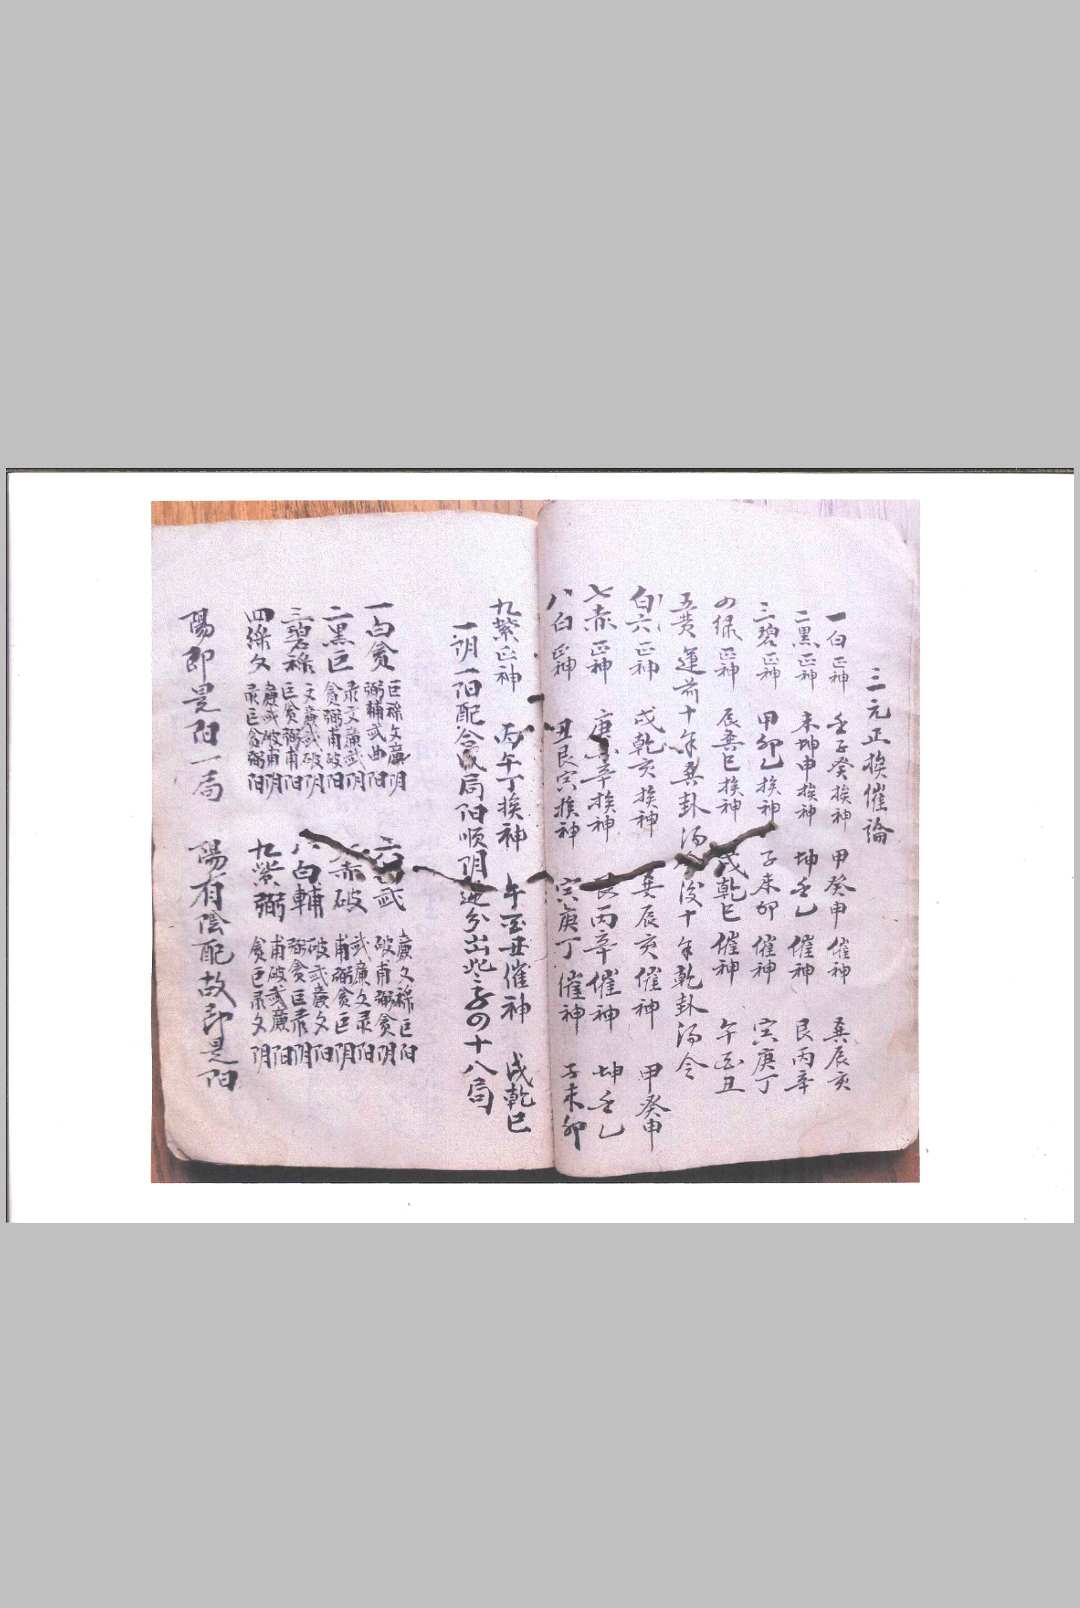 三元正挨催論
一白正神 壬子癸挨神 甲癸申催神 巽辰亥
二黑正神 未坤申挨神 坤壬乙催神 艮丙辛
三碧正神 甲卯乙挨神 子未卯催神 寅庚丁
四绿正神 辰巽巳挨神 戌乾巳催神 午酉丑
五黄運前十年巽卦汤 後十年乾卦汤令
六白正神 戌乾亥挨神 巽辰亥催神 甲癸申
七赤正神 庚 辛挨神 艮丙辛催神 坤壬乙
八白正神 丑艮寅挨神 寅庚丁催神 子未卯
九紫正神 丙午丁挨神 午酉丑催神 戌乾巳
一阴一阳配合成局阳顺阴逆分出 四十八局
一白贪 巨祿文廉阴 弼輔武曲阳 六白武 廉文祿巨阳 破甫弼贪阴
二黑巨 彔文廉武阴 贪弼甫破阳 七赤破 武廉文彔阳 甫弼贪巨阴
三碧祿 文廉武破阴 巨贪弼甫阳 八白輔 破武廉文阳 弼贪巨彔阴
四綠文 廉武破甫阴 彔巨贪弼阳 九紫弼 甫破武廉阳 贪巨彔文阴
陽即是阳一局 陽有陰配故即是阳